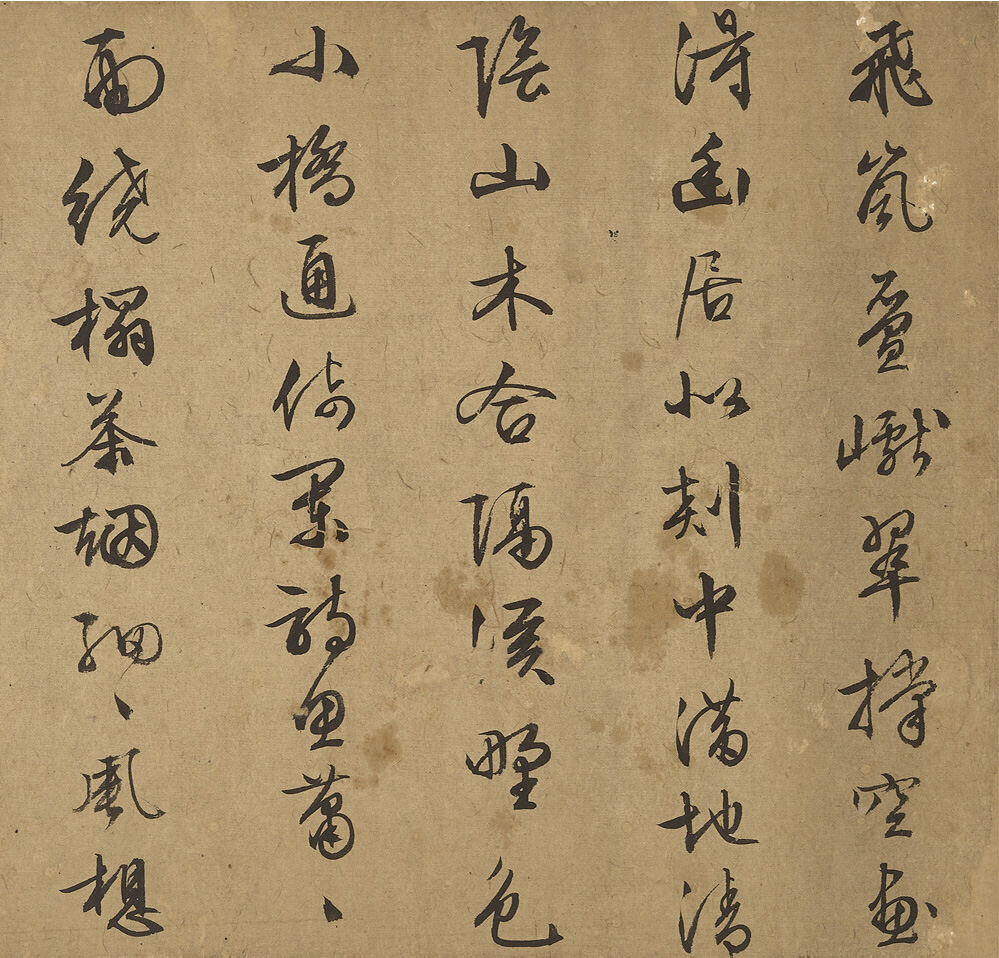 飛嵐疊巘翠撐空畫
得幽居似剡中滿地清
陰山木合隔溪野色
小橋通倚闌詩思蕭〻
雨繞榻茶烟細〻風想